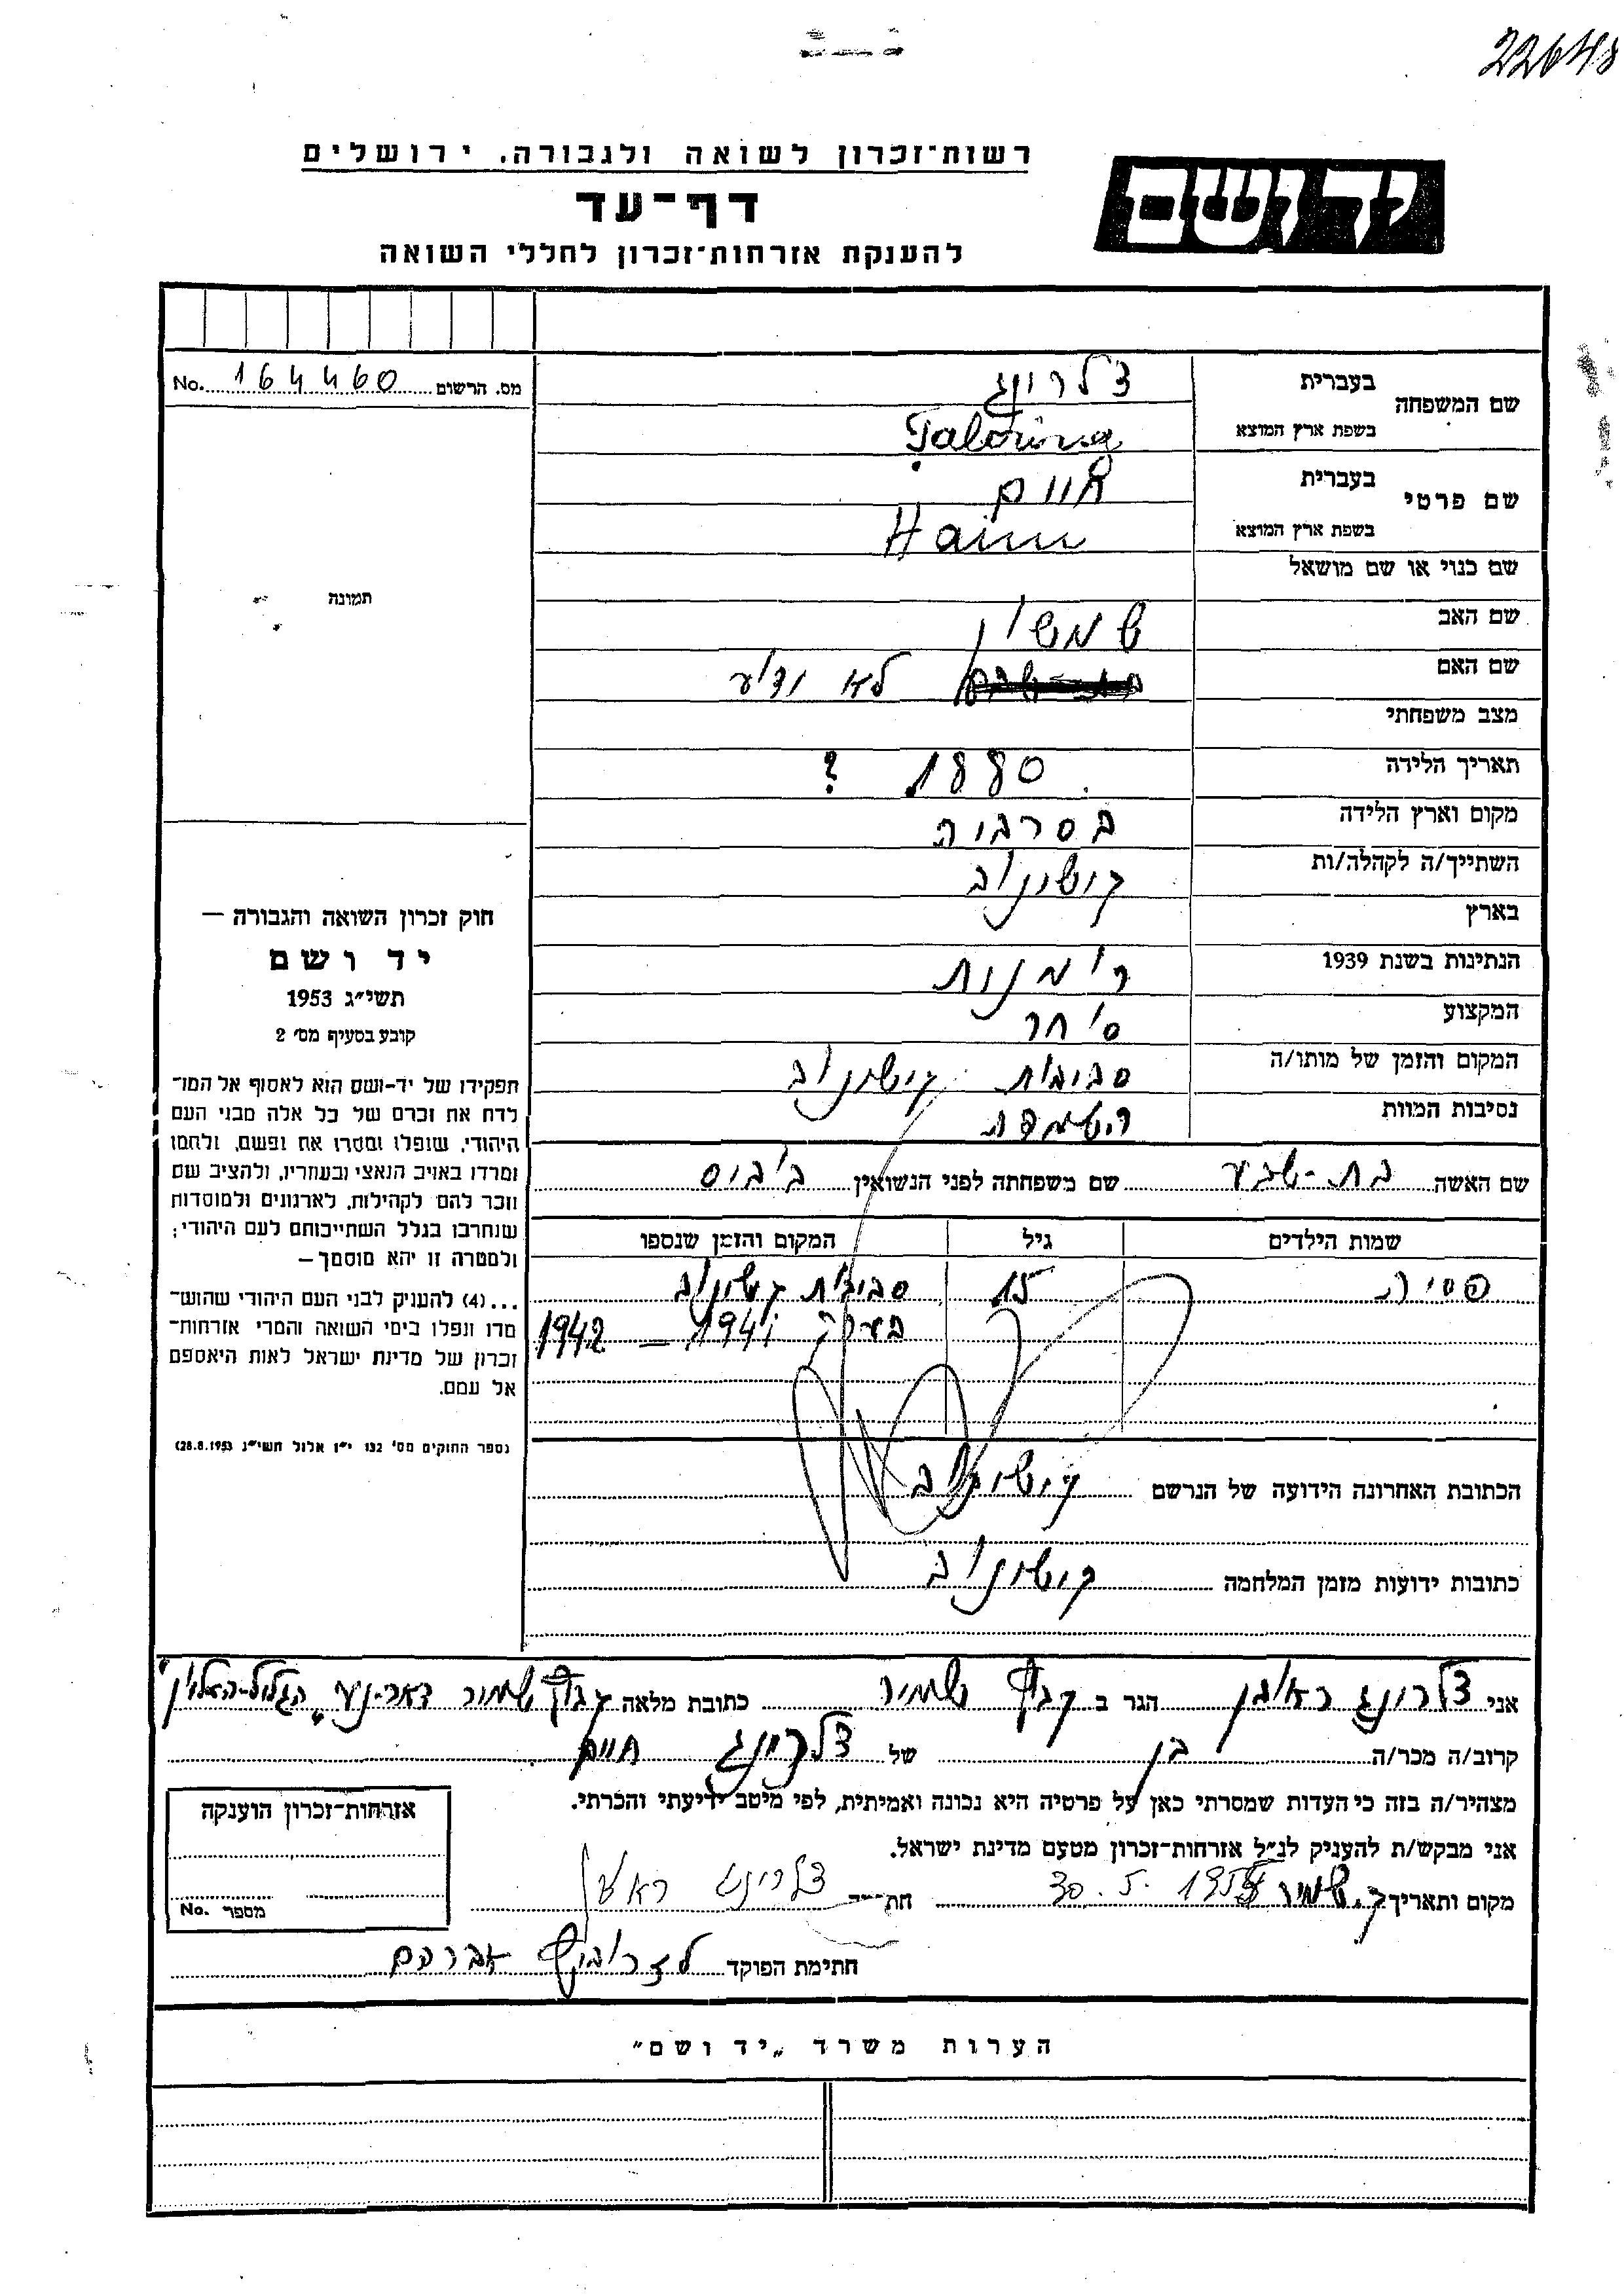 22648
רשות־זכרון לשואה ולגבורה. ירושלים
יד ושם
דף־עד
להענקת אזרחות־זכרון לחללי השואה
מס. הרשום 164460 No.
שם המשפחה בעברית צלרונג
בשפת ארץ המוצא
שם פרטי בעברית חיים
בשפת ארץ המוצא Haim
שם כנוי או שם מושאל
שם האב שמשון
שם האם לא ידוע
מצב משפחתי
תאריך הלידה 1880 ?
מקום וארץ הלידה בסרביה
השתייך/ה לקהלה/ות קישינוב
בארץ
הנתינות בשנת 1939 רומנית
המקצוע סוחר
המקום והזמן של מותו/ה סביבות קישינוב
נסיבות המוות השמדה
שם האשה בת-שבע שם משפחתה לפני הנשואין
שמות הילדים גיל המקום והזמן שנספו
פסיה 15 סביבות קישינוב
1941 – 1942
הכתובת האחרונה הידועה של הנרשם קישינוב
כתובות ידועות מזמן המלחמה קישינוב
תמונה
חוק זכרון השואה והגבורה —
יד ושם
תשי״ג 1953
קובע בסעיף מס׳ 2
תפקידו של יד-ושם הוא לאסוף אל המו־
לדת את זכרם של כל אלה מבני העם
היהודי, שנפלו ומסרו את נפשם, נלחמו
ומרדו באויב הנאצי ובעוזריו, ולהציב שם
וזכר להם לקהילות, לארגונים ולמוסדות
שנחרבו בגלל השתייכותם לעם היהודי;
ולמטרה זו יהא מוסמך—
...(4) להעניק לבני העם היהודי שהוש־
מדו ונפלו בימי השואה והמרי אזרחות־
זכרון של מדינת ישראל לאות היאספם
אל עמם.
(ספר החוקים מס׳ 132 י״ז אלול תשי״ג 28.8.1953)
אני צלרונג ראובן הגר ב קבוץ שמיר כתובת מלאה קבוץ שמיר דאר-נע "הגליל-העליון"
קרוב/ה מכר/ה בן של צלרונג חיים
מצהיר/ה בזה כי העדות שמסרתי כאן על פרטיה היא נכונה ואמיתית, לפי מיטב ידיעתי והכרתי.
אני מבקש/ת להעניק לנ״ל אזרחות־זכרון מטעם מדינת ישראל.
מקום ותאריך ק. שמיר 30.5. חת
אזרחות־זכרון הוענקה
מספר No.
חתימת הפוקד אברהם
הערות משרד „יד ושם״